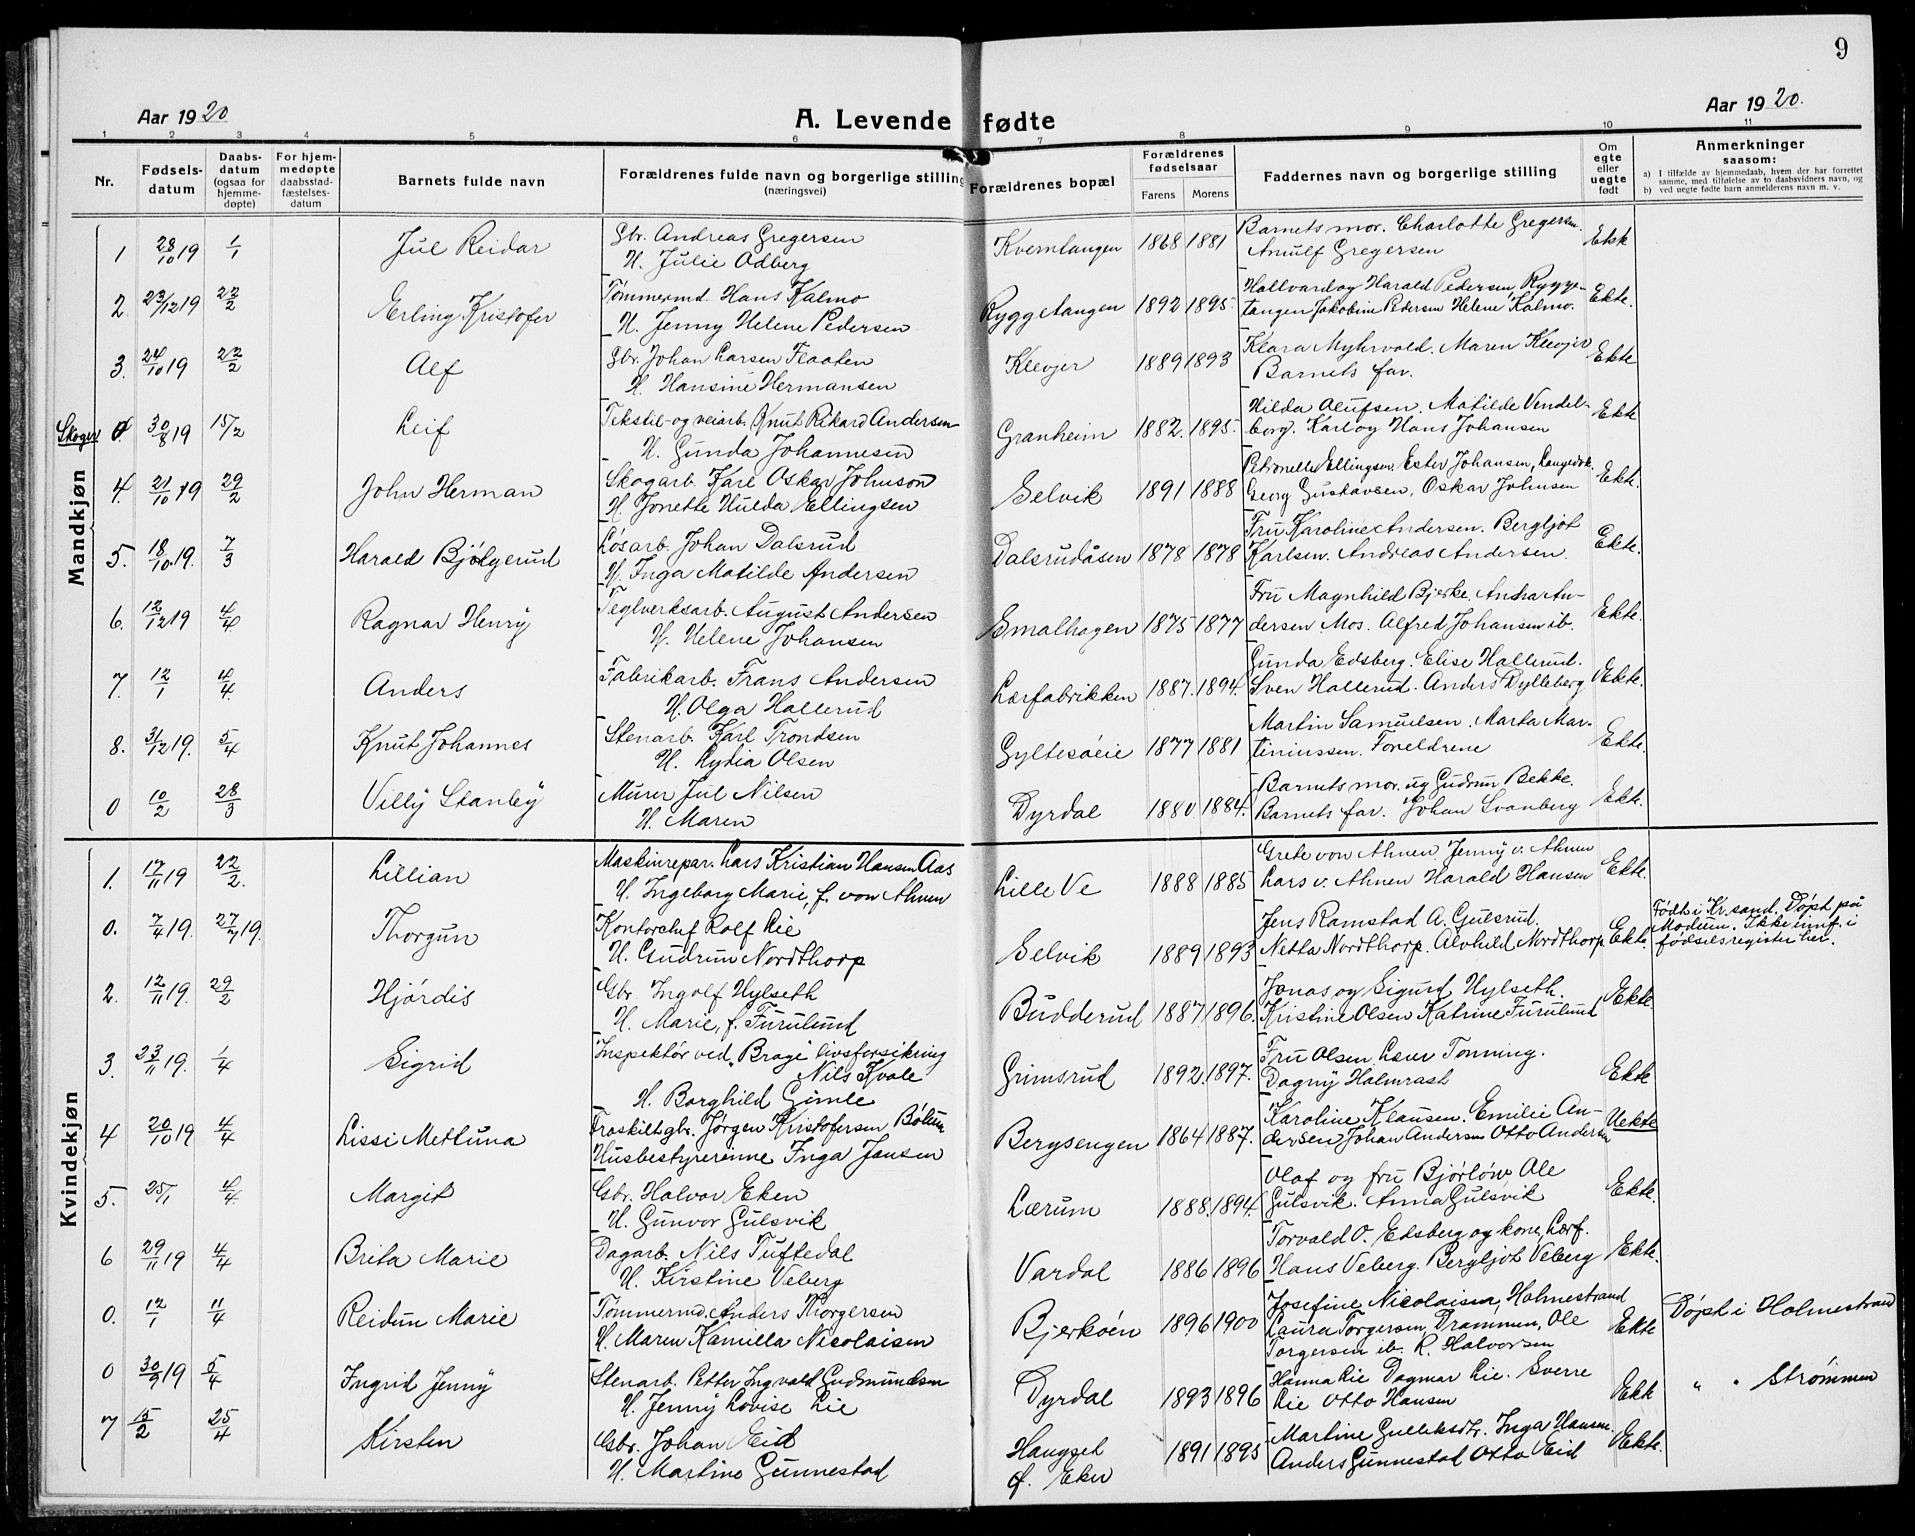 9
Aar 1920
A. Levende fødte
Aar 1920.
1 2 3 4 5 6 7 8 9 10 11
Nr.
Fødsels-
datum
Daabs-
datum
(ogsaa for
hjemme-
døpte)
For hjem-
medøpte
daabsstad-
fæstelses-
datum
Barnets fulde navn
Forældrenes fulde navn og borgerlige stilling
(næringsvei)
Forældrenes bopæl
Forældrenes
fødselsaar
Farens Morens
Faddernes navn og borgerlige stilling
Om
egte
eller
uegte
født
Anmerkninger
saasom:
a) I tilfælde av hjemmedaab, hvem der har forrettet
samme, med tilføielse av to daabsvidners navn, og
b) ved uegte fødte barn anmelderens navn m. v.
Mandkjøn
1 28/10 19 1/1 Jul Reidar Gbr. Andreas Gregersen Kverntangen 1868 1881 Barnets mor. Charlotte Gregersen. Ekte
H. Julie Odberg Arnulf Gregersen
2. 23/12 19 22/2 Erling Kristofer Tømmermd. Hans Kalmo Ryggetangen 1892 1895. Hallvard og Harald Pedersen, Rygge- Ekte.
H. Jenny Helene Pedersen tangen Jakobine Pedersen Helene Kalmo.
3. 24/10 19 22/2 Alf Gbr. Johan Larsen Flaaten Klevjer 1889 1893 Klara Myhrvold. Maren Klevjer Ekte
H. Hansine Hermansen Barnets far.
Skoger 0. 30/8 19 15/2 Leif Tekstil- og veiarb. Knut Rikard Andersen Granheim 1882. 1895. Hilda Olufsen. Matilde Vendel- Ekte
H. Gunda Johannesen borg. Karl og Hans Johansen
4. 21/10 19 29/2 John Herman Skogarb. Karl Oskar Johnson Selvik 1891 1888 Petronelle Ellingsen. Ester Johansen, Ekte.
H. Jonette Hulda Ellingsen Georg Gustavsen, Oskar Johnsen
5. 18/10 19. 7/3 Harald Bjølgerud Løsarb. Johan Dalsrud Dalsrudåsen 1878 1878 Fru Karoline Andersen. Bergljot Ekte.
H. Inga Matilde Andersen Karlsen. Andreas Andersen.
6. 12/12 19 4/4 Ragnar Henry Teglverksarb. August Andersen Smalhagen 1875 1877 Fru Magnhild Bjerke. Andrea An- Ekte.
H. Helene Johansen dersen Mos. Alfred Johansen ib.
7. 12/1 4/4 Anders Fabrikarb. Frans Andersen Lærfabrikken 1887. 1894. Gunda Edsberg. Elise Hallerud. Ekte.
H. Olga Hallerud Sven Hallerud. Anders Dylleberg
8. 31/12 19. 5/4 Knut Johannes Stenarb. Karl Trondsen Gyltesøeie 1877 1881 Martin Samuelsen. Marta Mar- Ekte.
H. Lydia Olsen tiniussen. Foreldrene
0 10/2 28/3 Villy Stanley Murer Jul Nilsen Dyrdal 1880 1884. Barnets mor. ug Gudrun Bekke. Ekte.
H. Maren Barnets far. Johan Svanberg
Kvindekjøn
1. 17/11 19 22/2. Lillian Maskinrepar. Lars Kristian Hansen Aas Lille Ve 1888 1885 Grete von Ahnen Jenny v. Ahnen Ekte.
H. Ingeborg Marie, f. von Ahnen Lars v. Ahnen Harald Hansen
0. 7/4 19. 27/7 19. Thorgun Kontorchef Rolf Lie Selvik 1889 1893 Jens Ramstad A. Gulsrud. Ekte. Født i Kr.sand. Døpt på
H. Gudrun Nordthorp Netta Nordthorp. Alvhild Nordthorp Modum. Ikke innf. i
fødselsregister her.
2. 12/11 19. 29/2 Hjørdis Gbr. Ingolf Hylseth Budderud 1887. 1896. Jonas og Sigurd Hylseth. Ekte
H. Marie, f. Furulund Kristine Olsen Katrine Furulund
3. 23/11 19. 1/4 Sigrid Inspektør ved "Brage" livsforsikring Grimsrud 1892. 1897. Fru Olsen Lærer Tonning. Ekte
Nils Kvale Dagny Holmrast
H. Borghild Gimle
4 20/10 19 4/4 Lissi Mettuna Fraskilt gbr. Jørgen Kristofersen Bølum Bergsengen 1864 1887. Karoline Klausen. Emilie An- Uekte
Husbestyrerinne Inga Jansen dersen Johan Andersen Otto Andersen
5. 25/1 4/4. Margit Gbr. Halvor Eken Lærum 1888. 1894. Olaf og fru Bjørløw, Ole Ekte.
H. Gunvor Gulsvik Gulsvik. Anna Gulsvik
6 29/11 19 4/4 Brita Marie Dagarb. Nils Tuftedal Vardal 1886 1896 Torvald O. Edsberg og kone, Lærf. Ekte.
H. Kirstine Veberg Hans Veberg. Bergljot Veberg
0. 12/1 11/4 Reidun Marie Tømmermd. Anders Thorgersen Bjerkøen 1896 1900 Josefine Nicolaisen, Holmestrand Ekte Døpt i Holmestrand
H. Maren Kamilla Nicolaisen Laura Torgersen, Drammen, Ole
Torgersen ib. R. Halvorsen
0 30/9 19 5/4 Ingrid Jenny Stenarb. Petter Ingvald Gudmundsen Dyrdal 1893 1896 Hanna Lie Dagmar Lie. Sverre Ekte " " Strømmen
H. Jenny Lovise Lie Lie Otto Hansen
7 15/2 25/4 Kirsten Gbr. Johan Eid Haugset 1891 1895 Martine Gulliksdtr. Inga Hansen. Ekte.
H. Martine Gunnestad Ø. Eker Anders Gunnestad Otto Eid